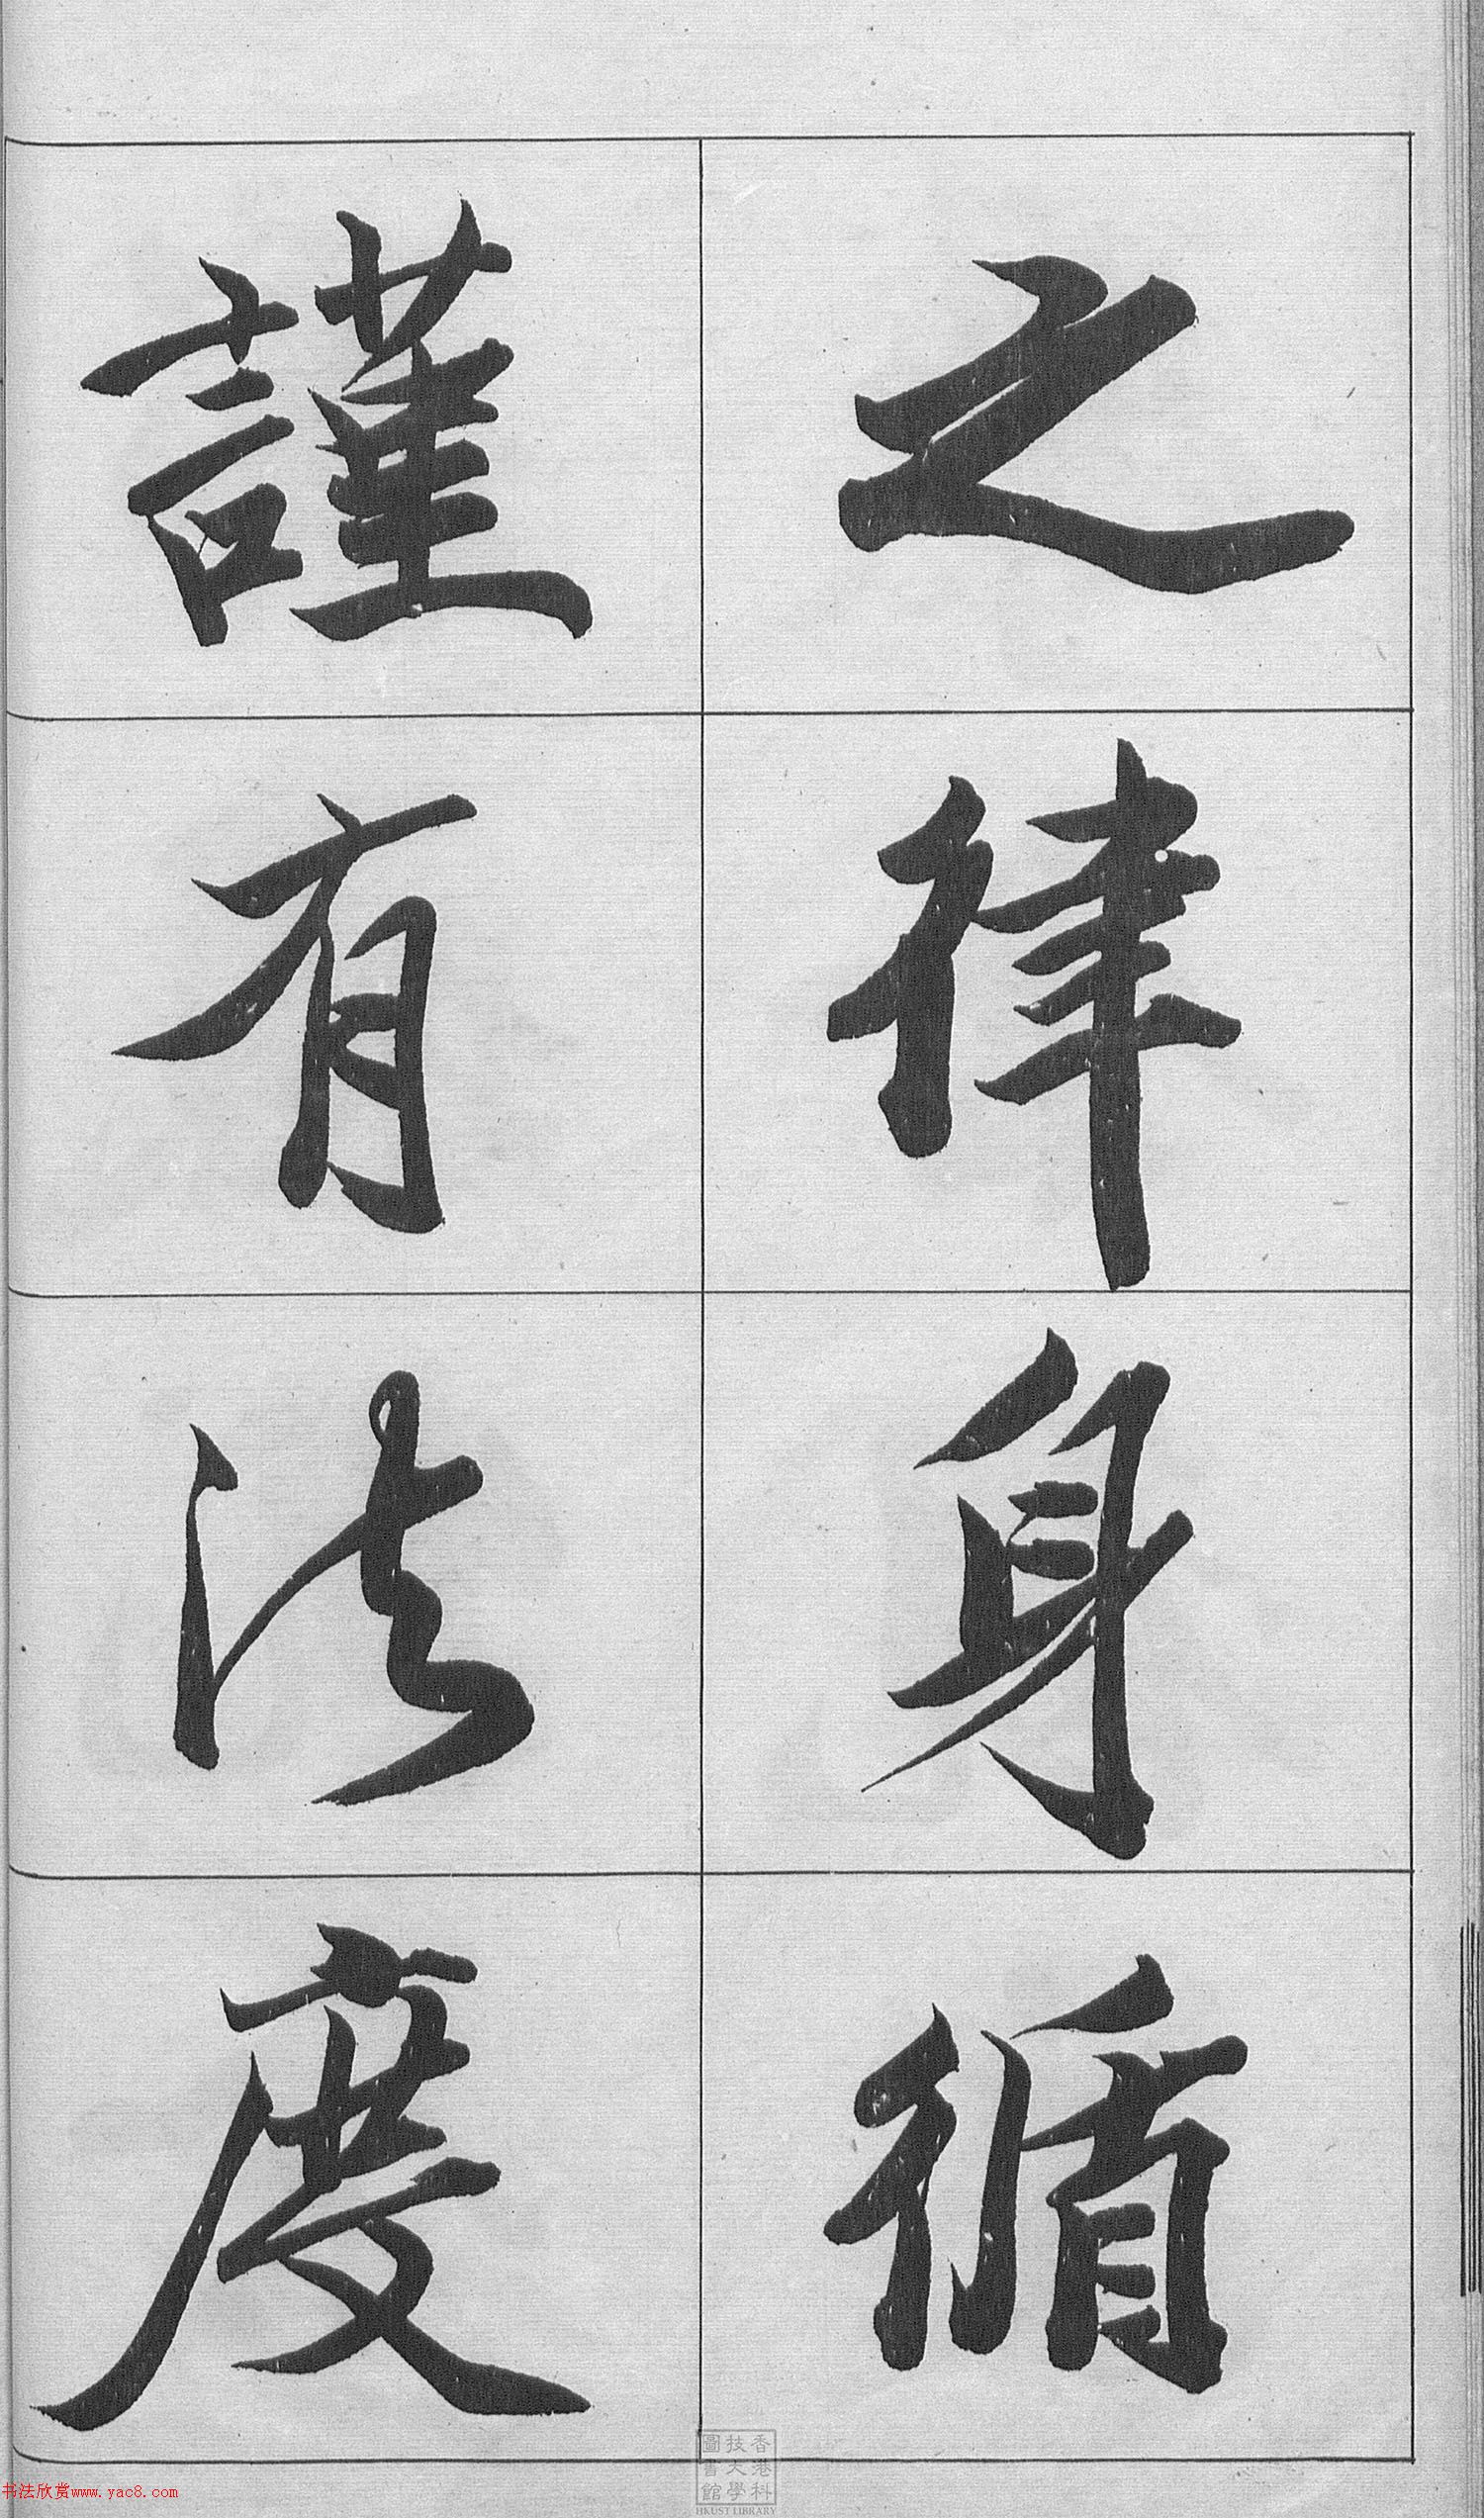 之律身循
謹有法度
香港科
技大學
圖書館
HKUST LIBRARY
书法欣赏www.yac8.com